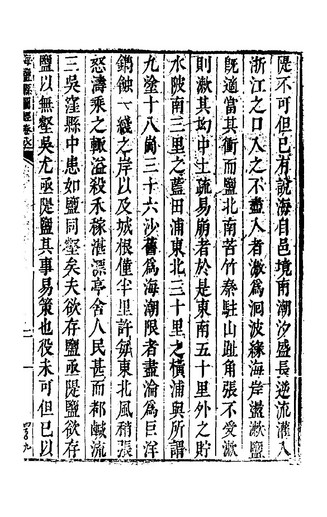 隄不可但已有說海自邑境南潮汐盛長逆流灌入
浙江之口入之不盡入者漱爲洄波緣海岸盪漱鹽
旣適當其衝而鹽北南苦竹秦駐山趾角張不受漱
則漱其均中土疏易崩者於是東南五十里外之貯
水陂南三里之藍田浦東北三十里之橫浦與所謂
九塗十八岡三十六沙舊爲海潮限者盡淪爲巨洋
鐫蝕一綫之岸以及城根僅半里許每東北風稍張
怒濤乘之輒溢殺禾稼湛漂亭舍人民甚而都鹹流
三吳窪縣中患如鹽同壑矣夫欲存鹽亟隄鹽欲存
鹽以無壑吳尤亟隄鹽其事易策也役未可但已以
海鹽縣圖經卷八